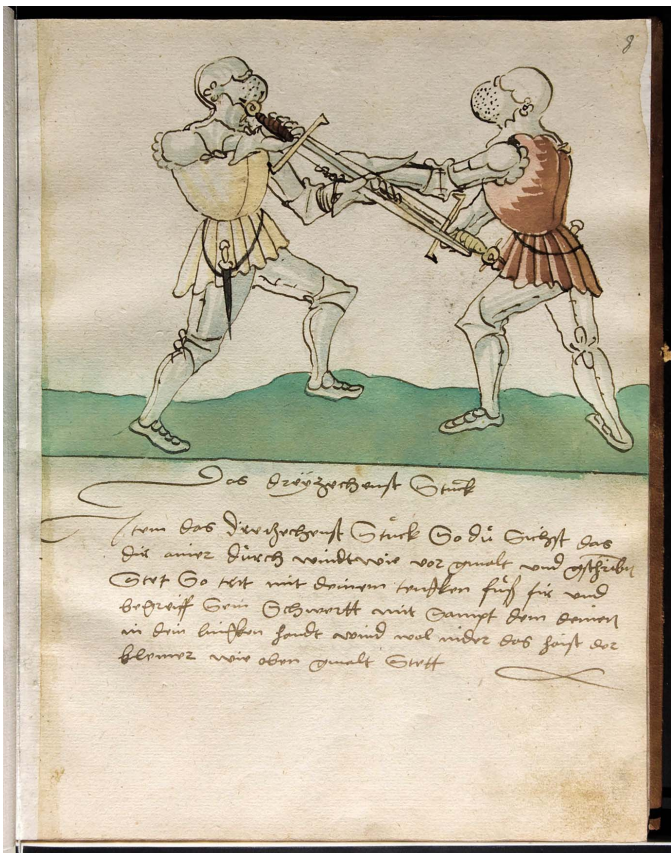 8
Das dreyzechenst Stuck
Item das dreizechenst Stuck So du Sichst das
dir ainer durch windt wie vor gmalt und gschriben
Stet So trit mit deinem lenkhen fuß für und
begreiff Sein Schwertt mit sampt dem deinen
in dein linkhen handt wind wol nider das haist der
klemer wie oben gmalt Stett